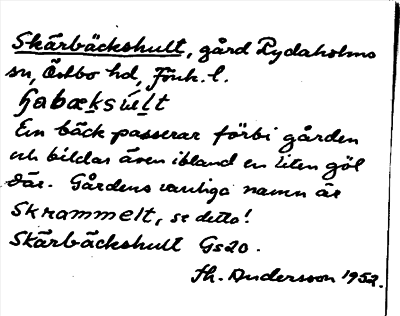 Skärbäckshult, gård Rydaholms
sn, Östbo hd, Jönk. l.
Ein bäck passerar förbi gården
och bildar även ibland en liten göl
där. Gårdens vanliga namn är
Skrammelt, se detta!
Skärbäckshult Gs20.
Th. Andersson 1952.